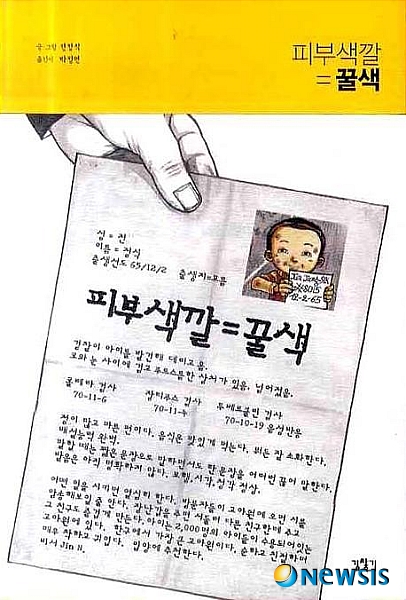 글·그림 전정식
옮긴이 박정연
피부색깔
=꿀색
성 = 전
이름 = 정식
출생년도 65/12/2 출생지=모름
Jin Jung-Sik
12-2-65
피부색깔=꿀색
경찰이 아이를 발견해 데려고 옴.
코와 눈 사이에 길고 푸르스름한 상처가 있음. 넘어졌음.
콜레라 검사
70-11-6
장티푸스 검사
70-11-4
투베르쿨린 검사
70-10-19 음성반응
정이 많고 마른 편이다. 음식은 맛있게 먹는다. 뭐든 잘 소화한다.
배설능력 완벽.
말할 때는 짧은 문장으로 말하면서도 한 문장을 여러번 끊어 말한다.
발음은 아직 명확하지 않다. 보행, 시각, 청각 정상.
어떤 일을 시키면 열심히 한다. 방문자들이 고아원에 오면 서울
말솜씨로 말을 한다. 장난감을 주면 서울의 다른 친구한테 주고
그 친구도 즐겁게 만든다. 아이는 2,000명의 아이들이 수용되어있는
고아원에 있다. 한국에서 가장 큰 고아원이다. 순하고 친절하며
매우 착하고 귀엽다. 입양에 추천한다.
비서 Jin N.
길찾기
newsis